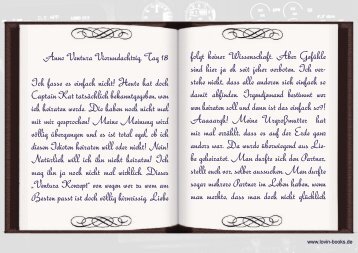 Anno Ventura Vierundachtzig, Tag 18
Ich fasse es einfach nicht! Heute hat doch
Captain Kat tatsächlich bekanntgegeben, wen
ich heiraten werde. Die haben noch nicht mal
mit mir gesprochen! Meine Meinung wird
völlig übergangen und es ist total egal, ob ich
diesen Idioten heiraten will oder nicht! Nein!
Natürlich will ich ihn nicht heiraten! Ich
mag ihn ja noch nicht mal wirklich. Dieses
„Ventura Konzept“ von wegen wer zu wem am
Besten passt ist doch völlig hirnrissig. Liebe
folgt keiner Wissenschaft. Aber Gefühle
sind hier ja eh seit jeher verboten. Ich ver-
stehe nicht, dass alle anderen sich einfach so
damit abfinden. Irgendjemand bestimmt wer
wen heiraten soll und dann ist das einfach so?!
Aaaaargh! Meine Urgroßmutter hat
mir mal erzählt, dass es auf der Erde ganz
anders war. Da wurde überwiegend aus Lie-
be geheiratet. Man durfte sich den Partner,
stellt euch vor, selber aussuchen. Man durfte
sogar mehrere Partner im Leben haben, wenn
man merkte, dass man doch nicht glücklich
www.lovin-books.de